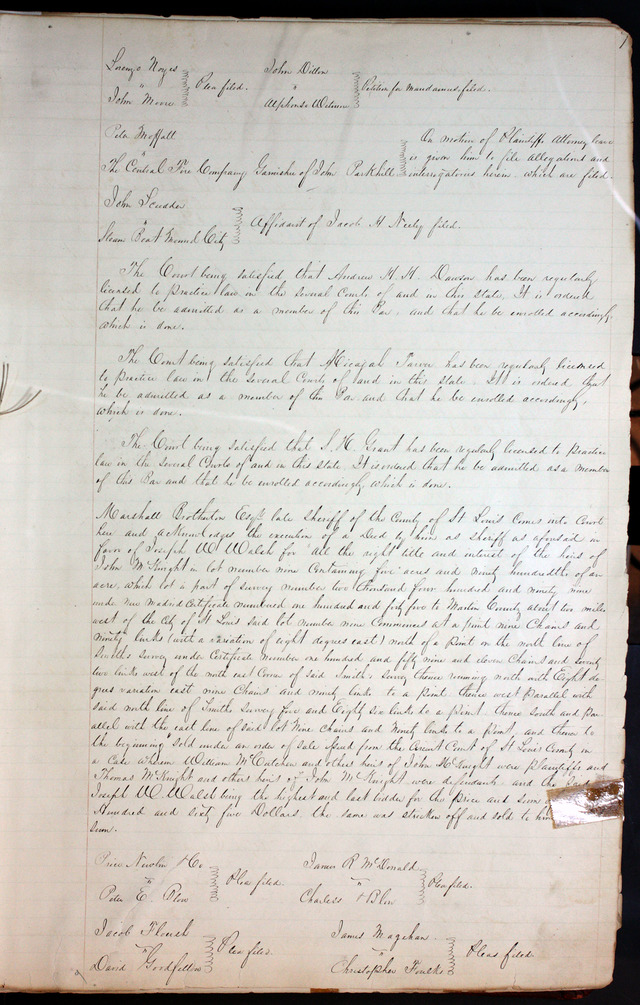 Lorenzo Noyes
"
John Moore
Plea filed.
John Dillon
"
Alphonso Wetmore
Petition for mandamus filed.
Peter Moffatt
"
The Central Fire Company Garnishee of John Parkhill
On motion of Plaintiffs Attorney leave
is given him to file allegations and
interrogatories herein which are filed
John Scudder
"
Steam Boat Mound City
Affidavit of Jacob H Neely filed.
The Court being satisfied that Andrew H. H. Dawson has been regularly
licensed to practice law in the several Courts of and in this State, It is ordered
that he be admitted as a member of this Bar, and that he be enrolled accordingly,
which is done.
The Court being satisfied that Micajah Tarver has been regularly licensed
to practice law in the several Courts of and in this state. It is ordered that
he be admitted as a member of this Bar and that he be enrolled accordingly,
which is done.
The Court being satisfied that S. H. Grant has been regularly licensed to practice
law in the several Courts of and in this state. It is ordered that he be admitted as a member
of this Bar and that he be enrolled accordingly which is done.
Marshall Brotherton Esqr. late Sheriff of the County of St Louis Comes into Court
here and acknowledges the execution of a Deed by him as sheriff as aforesaid in
favor of Joseph W Walsh for all the right title and interest of the heirs of
John McKnight in lot number nine Containing five acres and ninety hundredths of an
acre, which lot is part of survey number two thousand four hundred and ninety nine
under New Madrid Certificate numbered one hundred and forty five to Martin County about two miles
west of the City of St Louis said lot number nine Commences at a point nine Chains and
ninety links (with a variation of eight degrees east) north of a point on the north line of
Smiths survey under Certificate number one hundred and fifty nine and eleven Chains and seventy
two links west of the north east Corner of said Smiths Survey thence running north with Eight de
grees variation east nine Chains and ninety links to a point thence west Parallel with
said north line of Smiths Survey five and Eighty six links to a point thence South and Par
allel with the east line of said lot Nine Chains and Ninety links to a point, and thence to
the beginning sold under an order of sale issued from the Circuit Court of St Louis County in
a Case wherein William McCutchen and others heirs of John McKnight were Plaintiffs and
Thomas McKnight and others heirs of John McKnight were defendants and the said
Joseph W. Walsh being the highest and last bidder for the price and sum
Hundred and sixty five Dollars, the same was stricken off and sold to him
sum.
Price Newlin & Co
"
Peter E. Blow
Plea filed.
James R McDonald
"
Charless & Blow
Plea filed.
Jacob Floush
"
David Goodfellow
Plea filed.
James Magehan
"
Christopher Foulks
Pleas filed